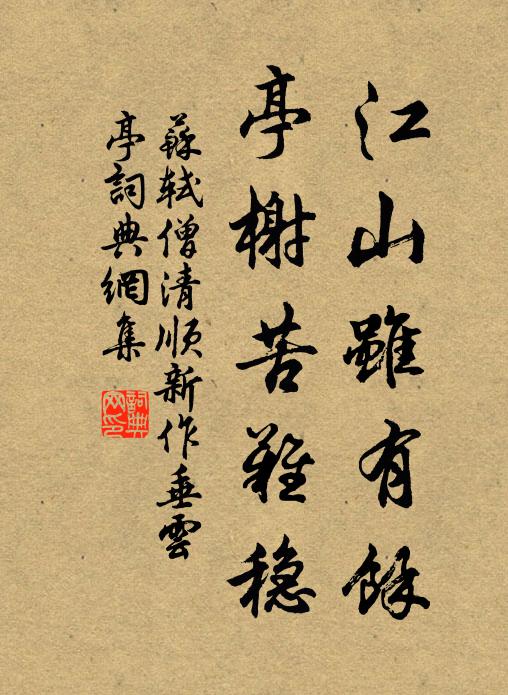 江山雖有餘
亭榭苦難穩
蘇軾僧清順新作垂雲
亭詞典網集
詞典
网印